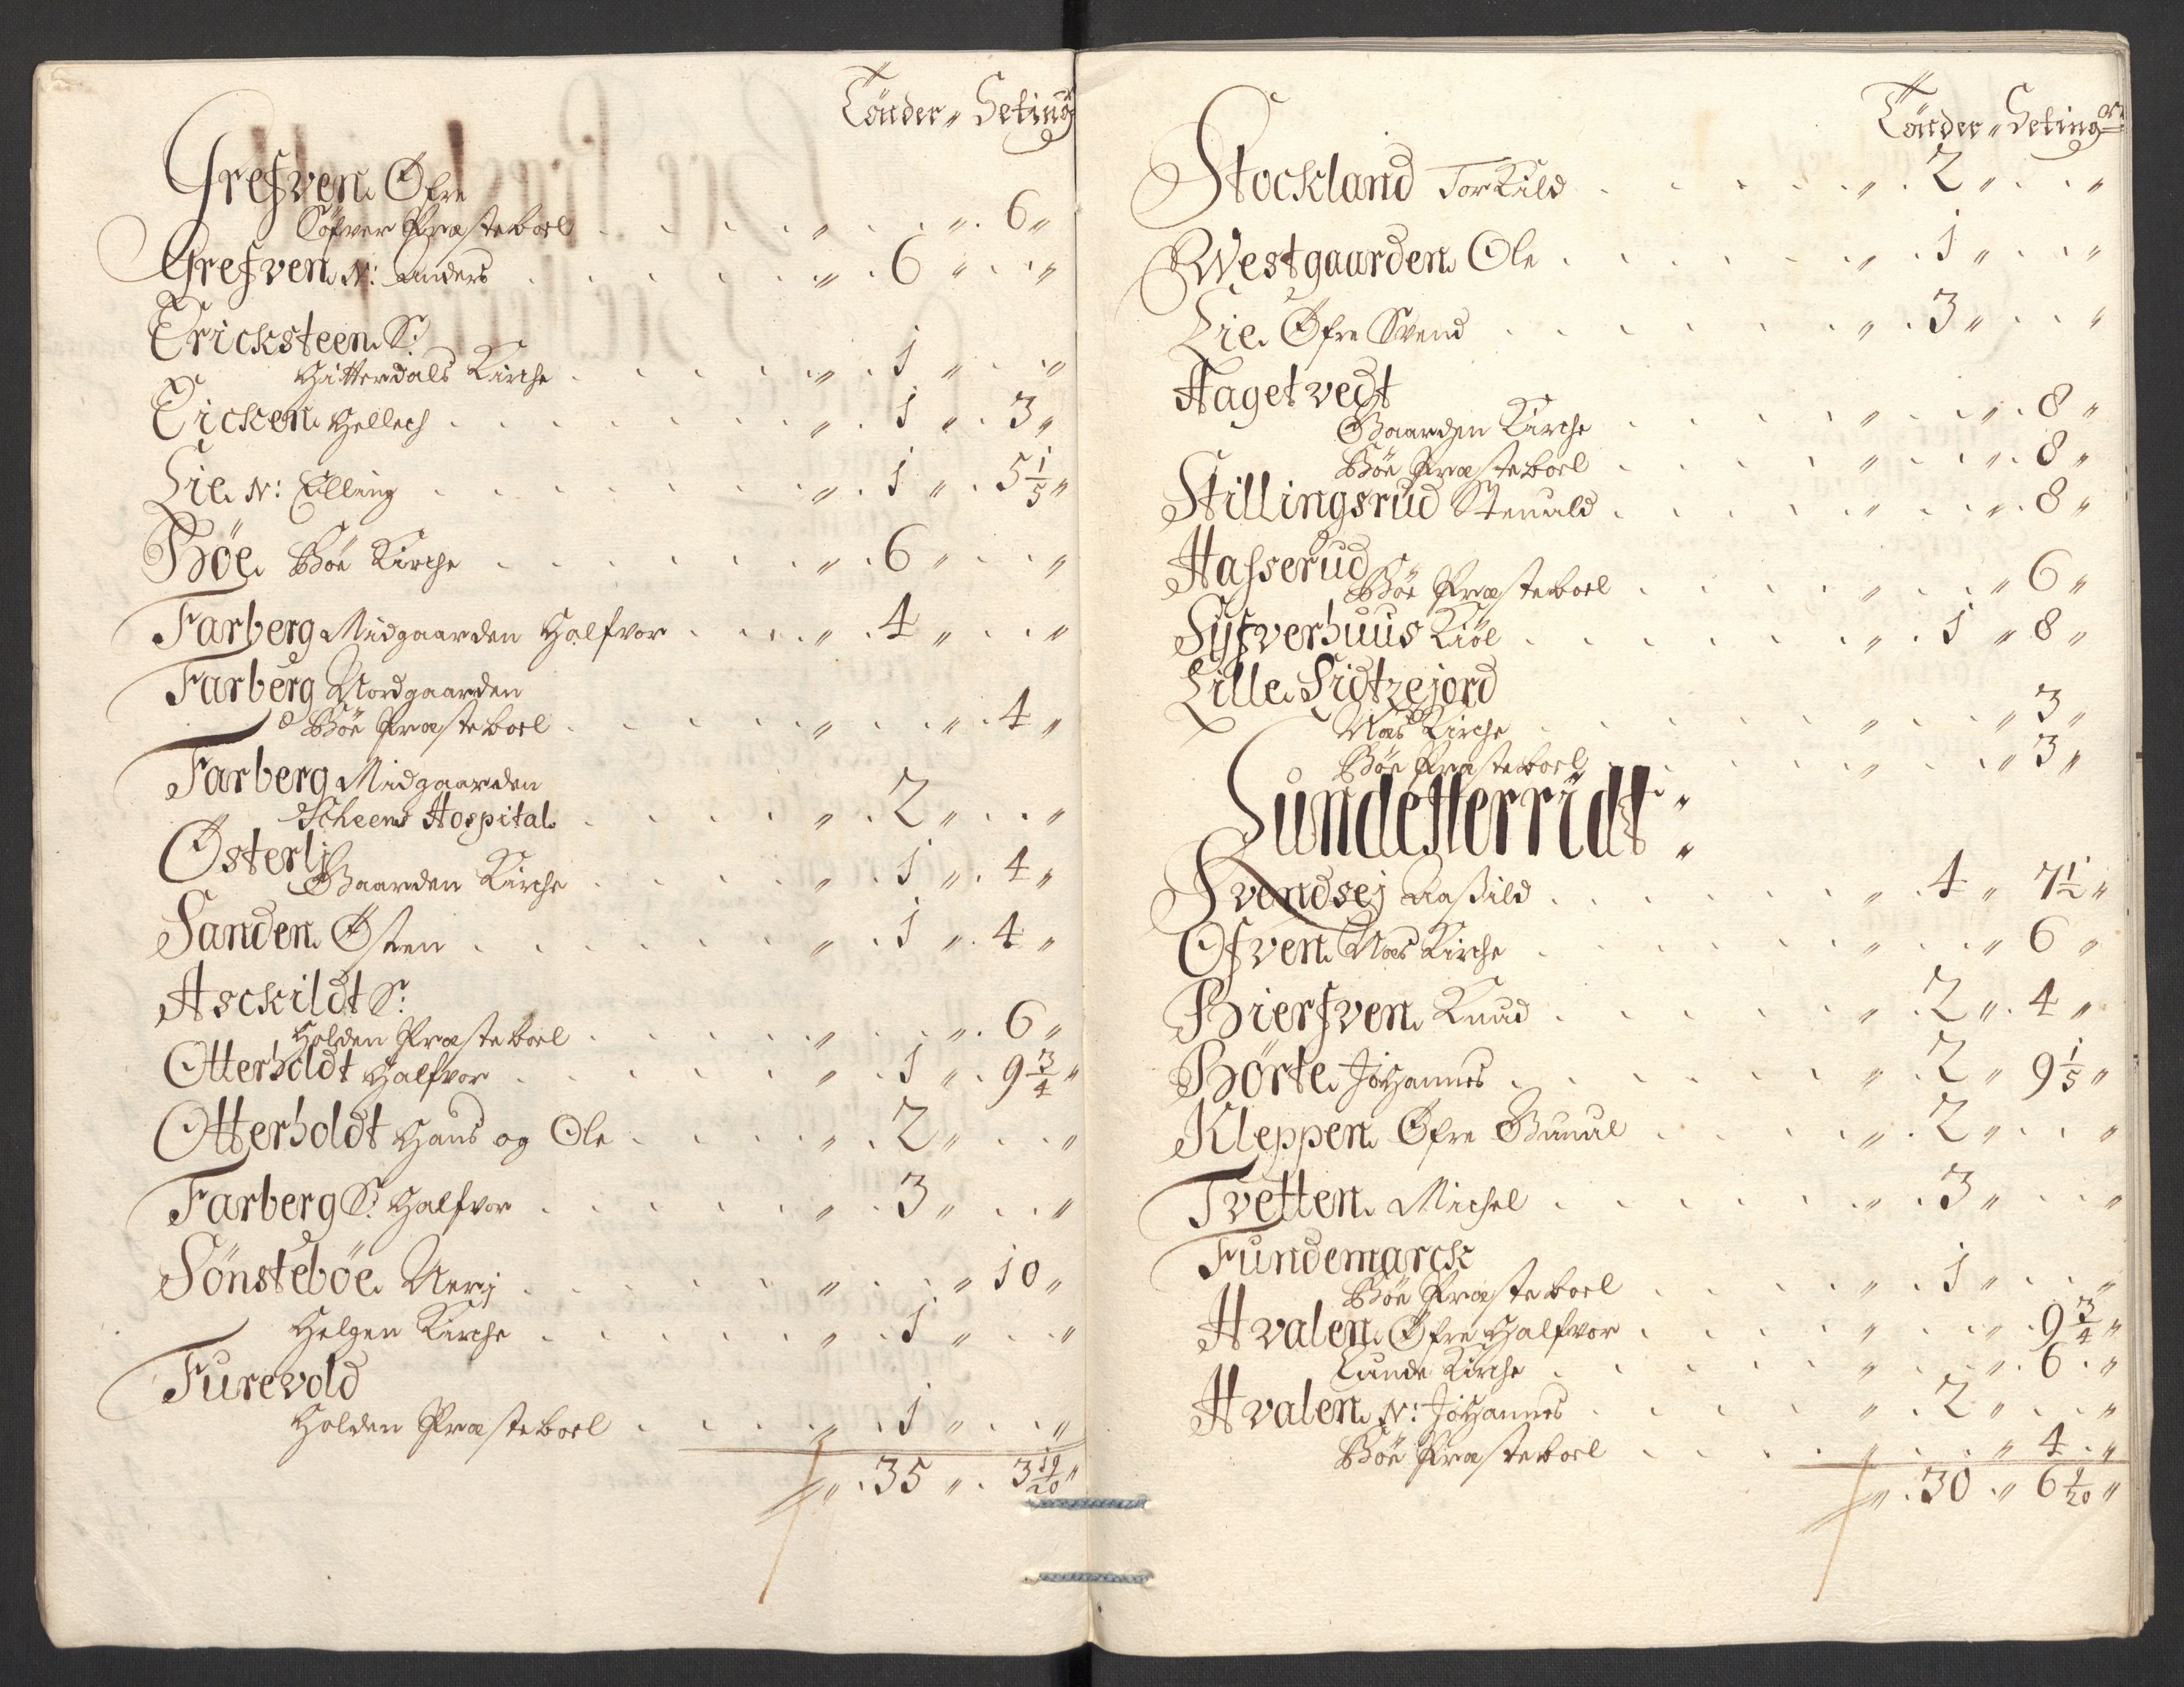 Tönder " Seting
Grefven Øfre
Præsteboel " . 6 "
Grefven N: Anders " 6 " "
Ericksteen S:
Hitterdals Kirche " 1 " "
Eicken Hellech " 1 " 3 "
Lie N: Elling " 1 " 5 1/5 "
Böe Böe Kirche " 6 " "
Farberg Midgaarden Halfvor " 4 " "
Farberg Nordgaarden
Böe Præsteboel " " 4 "
Farberg Midgaarden
Scheens Hospital " 2 " "
Østerlj
Gaarden Kirche " 1 " 4 "
Sanden Østen " 1 " 4 "
Asckildt S:
Holden Præsteboel " " 6 "
Otterholdt Halfvor " 1 " 9 3/4 "
Otterholdt Hans og Ole " 2 " "
Farberg S: Halfvor " 3 " "
Sönsteböe Nerij " " 10 "
Helgen Kirche " 1 " "
Furevold
Holden Præsteboel " 1 " "
" 35 " 3 19/20 "
Tönder " Setinger
Stockland Torkild " 2 " "
Westgaarden Ole " 1 " "
Lie Øfre Svend " 3 " "
Hagetvedt
Gaarden Kirche " " 8 "
Böe Præsteboel " " 8 "
Stillingsrud Stenuld " " 8 "
Hasserud
Böe Præsteboel " " 6 "
Syfverhuus Kiöl " 1 " 8 "
Lille Sidtzejord
Næs Kirche " " 3 "
Böe Præsteboel " " 3 "
Lundetterridt
Svendsej Aaßild " 4 " 7 1/2 "
Ofven Næs Kirche " " 6 "
Bierfven Knud " 2 " 4 "
Börte Johannes " 2 " 9 1/5 "
Kleppen Øfre Gunul " 2 " "
Tvetten Michel " 3 " "
Fundemarck
Böe Præsteboel " 1 " "
Hvalen Øfre Halfvor " " 9 3/4 "
Lunde Kirche " " 6 "
Hvalen N: Johannes " 2 " "
Böe Præsteboel " " 4 "
" 30 " 6 9/20 "